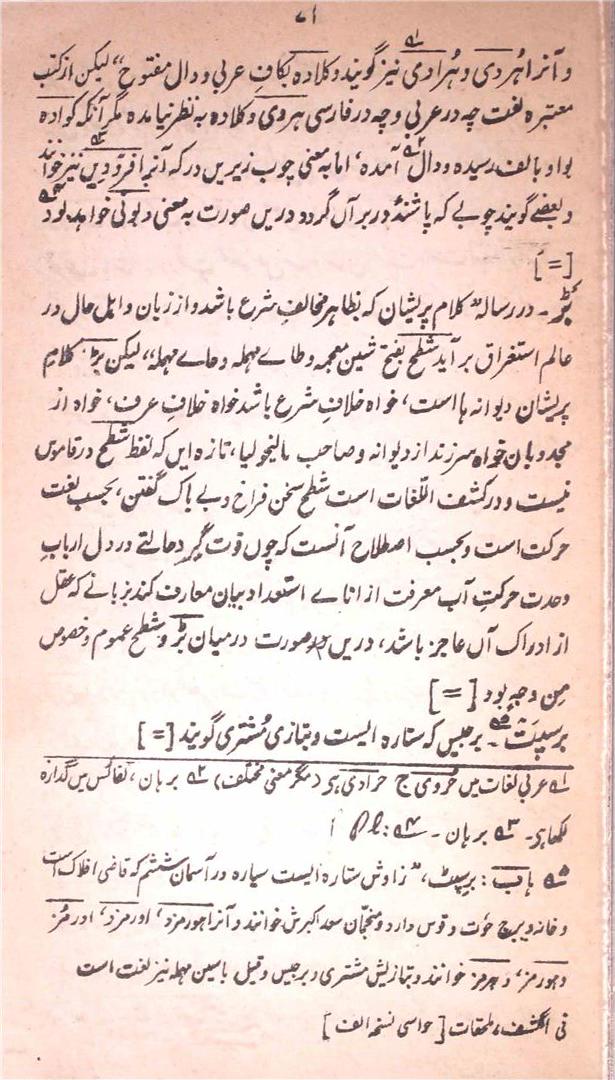 ۷۱
و آنرا ہُردی و ہُرادی۱؎ نیز گویند و کلادہ بکافِ عربی و دال مفتوح“ لیکن از کتب
معتبرہ لغت چہ در عربی و چہ در فارسی ہروی و کلادہ بہ نظر نیامدہ مگر آنکہ کوادہ
بواو بالف رسیدہ و دال۲؎ آمدہ، اما بہ معنی چوب زیریں در کہ آنرا فرودیں۳؎ نیز خوانند
و بعضے گویند چوبے کہ پاشنۂ در بر آں گردد دریں صورت بہ معنی دیوٹی خواہد بود۴؎
[=]
بَڑ۔ در رسالہ ”کلام پریشان کہ بظاہر مخالفِ شرع باشد و از زبان و اہل حال در
عالم استغراق بر آید شطح بفتح شین معجمہ و طاے مہملہ و حاے مہملہ“، لیکن بڑ کلامِ
پریشان دیوانہ ہا است، خواہ خلافِ شرع باشد خواہ خلافِ عرف، خواہ از
مجذوبان خواہ سرزند از دیوانہ و صاحب مالیخولیا، تازہ ایں کہ لفظ شطح در قاموس
نیست و در کشف اللّغات است شطح سخن فراخ و بے باک گفتن، بحسب لغت
حرکت است و بحسب اصطلاح آنست کہ چوں قوت گیرد حالتے در دل اربابِ
وحدت حرکتِ آب معرفت از اناے استعداد بیان معارف کند بزبانے کہ عقل
از ادراک آں عاجز باشد، دریں صورت درمیان بڑ و شطح عموم و خصوص
مِن وجہٍ بود [=]
برسپت۵؎۔ برجیس کہ ستارہ ایست و بتازی مُشتری گویند [=]
۱؎ عربی لغات میں حُروی ج حرادی ہی (مگر معنی مختلف) ۲؎ برہان، نفائس میں گدازہ
لکھا ہی۔ ۳؎ برہان۔ ۴؎ Pl:
۵؎ ہاب: برسپٹ، ”زاوش ستارہ ایست سیارہ در آسمان ششم کہ قاضی افلاک است
و خانہ در برج حوت و قوس دارد و منجّمان سعد اکبرش خوانند و آنرا ہورمزد، اورمزد، اورمز
و ہورمز، و ہرمز خوانند و بتازیش مشتری و برجیس و قیل باسین مہملہ نیز لغت است
فی الکشف، ملحقات [حواسی نسخہ الف]